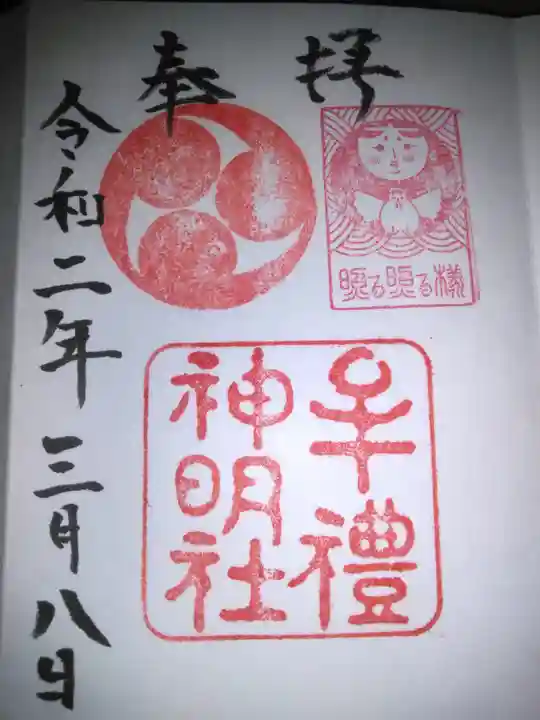 奉拝
る る様
牟禮
神明社
令和二年三月八日